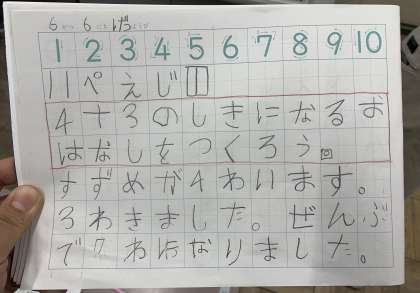 6から 6にち げつようび
1 2 3 4 5 6 7 8 9 10
11ぺえじ①
4+3のしきになるお
はなしをつくろう。
すずめが4わいます。
3わきました。ぜんぶ
で7わになりました。